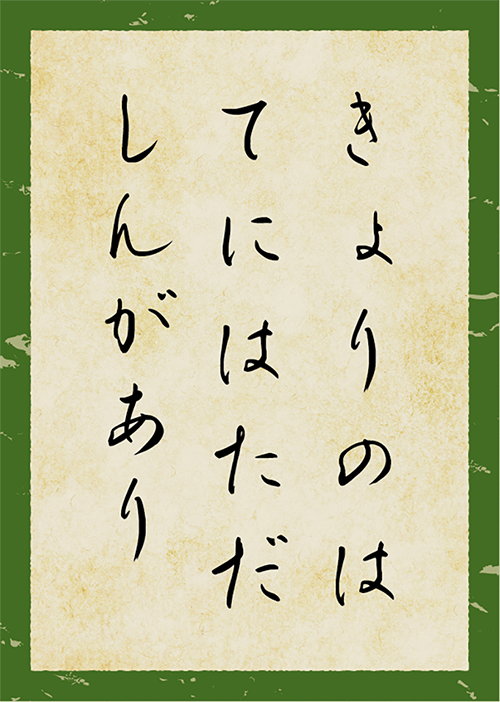 きよりのは
てにはただ
しんがあり